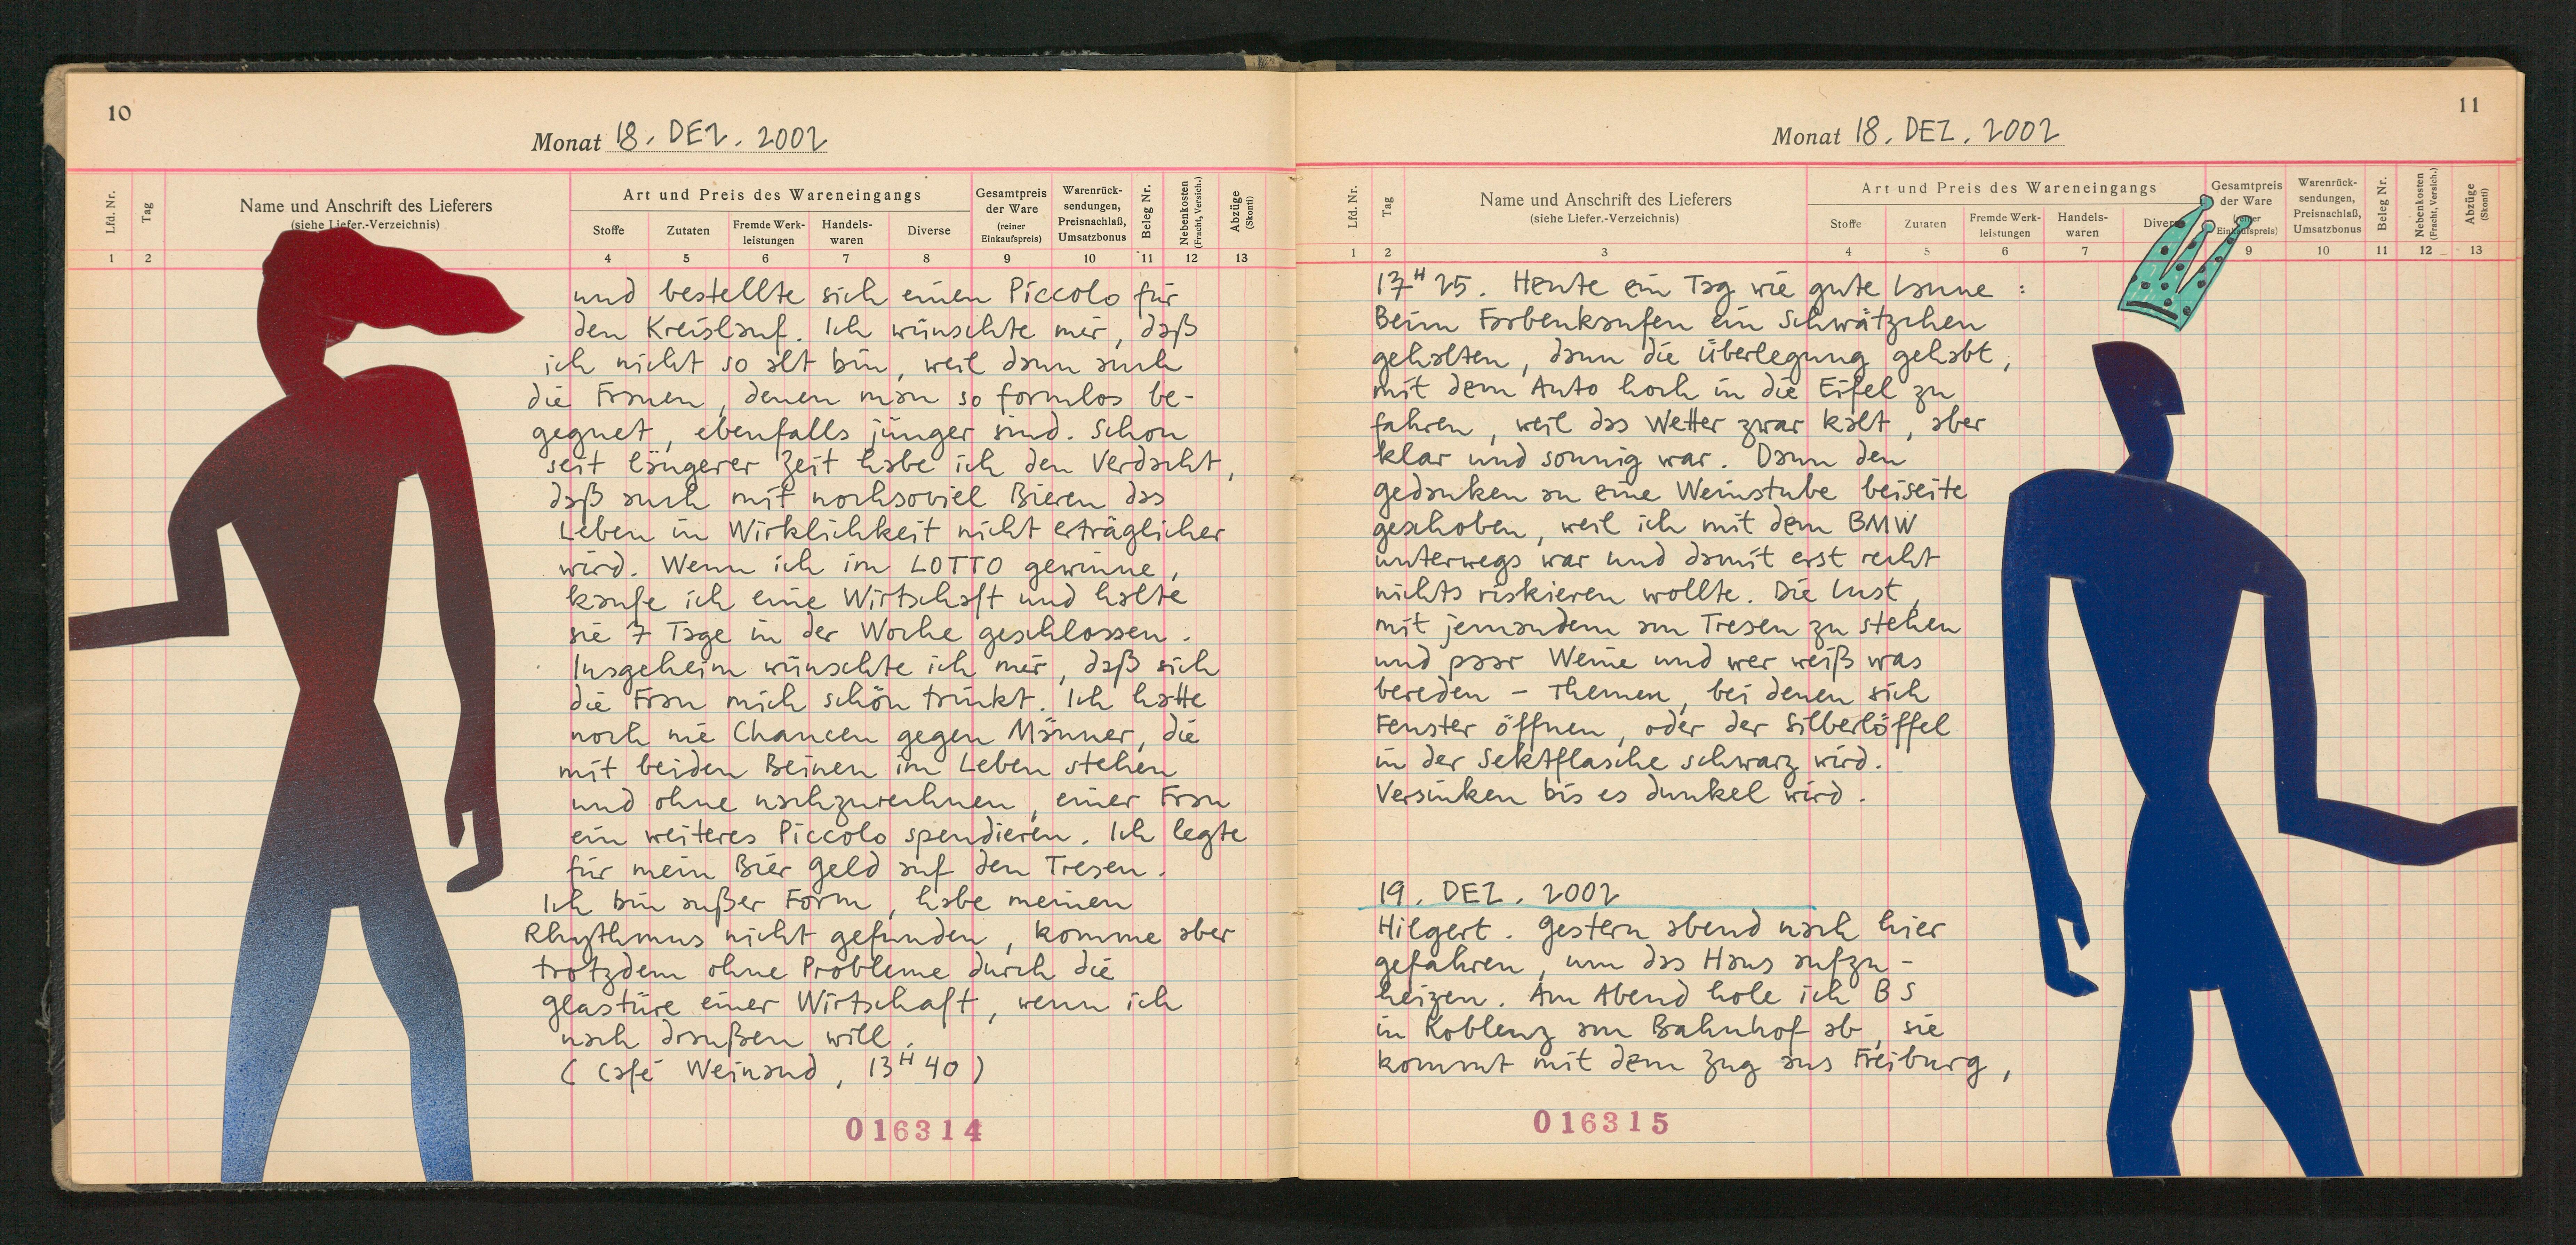 10
Monat 18. DEZ. 2002
Lfd. Nr.
Tag
Name und Anschrift des Lieferers
(siehe Liefer.-Verzeichnis)
Art und Preis des Wareneingangs
Stoffe
Zutaten
Fremde Werk-
leistungen
Handels-
waren
Diverse
Gesamtpreis
der Ware
(reiner
Einkaufspreis)
Warenrück-
sendungen,
Preisnachlaß,
Umsatzbonus
Beleg Nr.
Nebenkosten
(Fracht, Versich.)
Abzüge
(Skonti)
1 2 4 5 6 7 8 9 10 11 12 13
und bestellte sich einen Piccolo für
den Kreislauf. Ich wünschte mir, daß
ich nicht so alt bin, weil dann auch
die Frauen, denen man so formlos be-
gegnet, ebenfalls jünger sind. Schon
seit längerer Zeit habe ich den Verdacht,
daß auch mit nochsoviel Bieren das
Leben in Wirklichkeit nicht erträglicher
wird. Wenn ich im LOTTO gewinne,
kaufe ich eine Wirtschaft und halte
sie 7 Tage in der Woche geschlossen.
Insgeheim wünschte ich mir, daß sich
die Frau mich schön trinkt. Ich hatte
noch nie Chancen gegen Männer, die
mit beiden Beinen im Leben stehen
und ohne nachzurechnen, einer Frau
ein weiteres Piccolo spendieren. Ich legte
für mein Bier Geld auf den Tresen.
Ich bin außer Form, habe meinen
Rhythmus nicht gefunden, komme aber
trotzdem ohne Probleme durch die
Glastüre einer Wirtschaft, wenn ich
nach draußen will.
(Café Weinand, 13H40)
016314
11
Monat 18. DEZ. 2002
Lfd. Nr.
Tag
Name und Anschrift des Lieferers
(siehe Liefer.-Verzeichnis)
Art und Preis des Wareneingangs
Stoffe
Zutaten
Fremde Werk-
leistungen
Handels-
waren
Diverse
Gesamtpreis
der Ware
(reiner
Einkaufspreis)
Warenrück-
sendungen,
Preisnachlaß,
Umsatzbonus
Beleg Nr.
Nebenkosten
(Fracht, Versich.)
Abzüge
(Skonti)
1 2 3 4 5 6 7 9 10 11 12 13
17H25. Heute ein Tag wie gute Laune:
Beim Farbenkaufen ein Schwätzchen
gehalten, dann die Überlegung gehabt,
mit dem Auto hoch in die Eifel zu
fahren, weil das Wetter zwar kalt, aber
klar und sonnig war. Dann den
Gedanken an eine Weinstube beiseite
geschoben, weil ich mit dem BMW
unterwegs war und damit erst recht
nichts riskieren wollte. Die Lust,
mit jemandem am Tresen zu stehen
und paar Weine und wer weiß was
bereden – Themen, bei denen sich
Fenster öffnen, oder der Silberlöffel
in der Sektflasche schwarz wird.
Versinken bis es dunkel wird.
19. DEZ. 2002
Hilgert. Gestern abend nach hier
gefahren, um das Haus aufzu-
heizen. Am Abend hole ich BS
in Koblenz am Bahnhof ab, sie
kommt mit dem Zug aus Freiburg,
016315